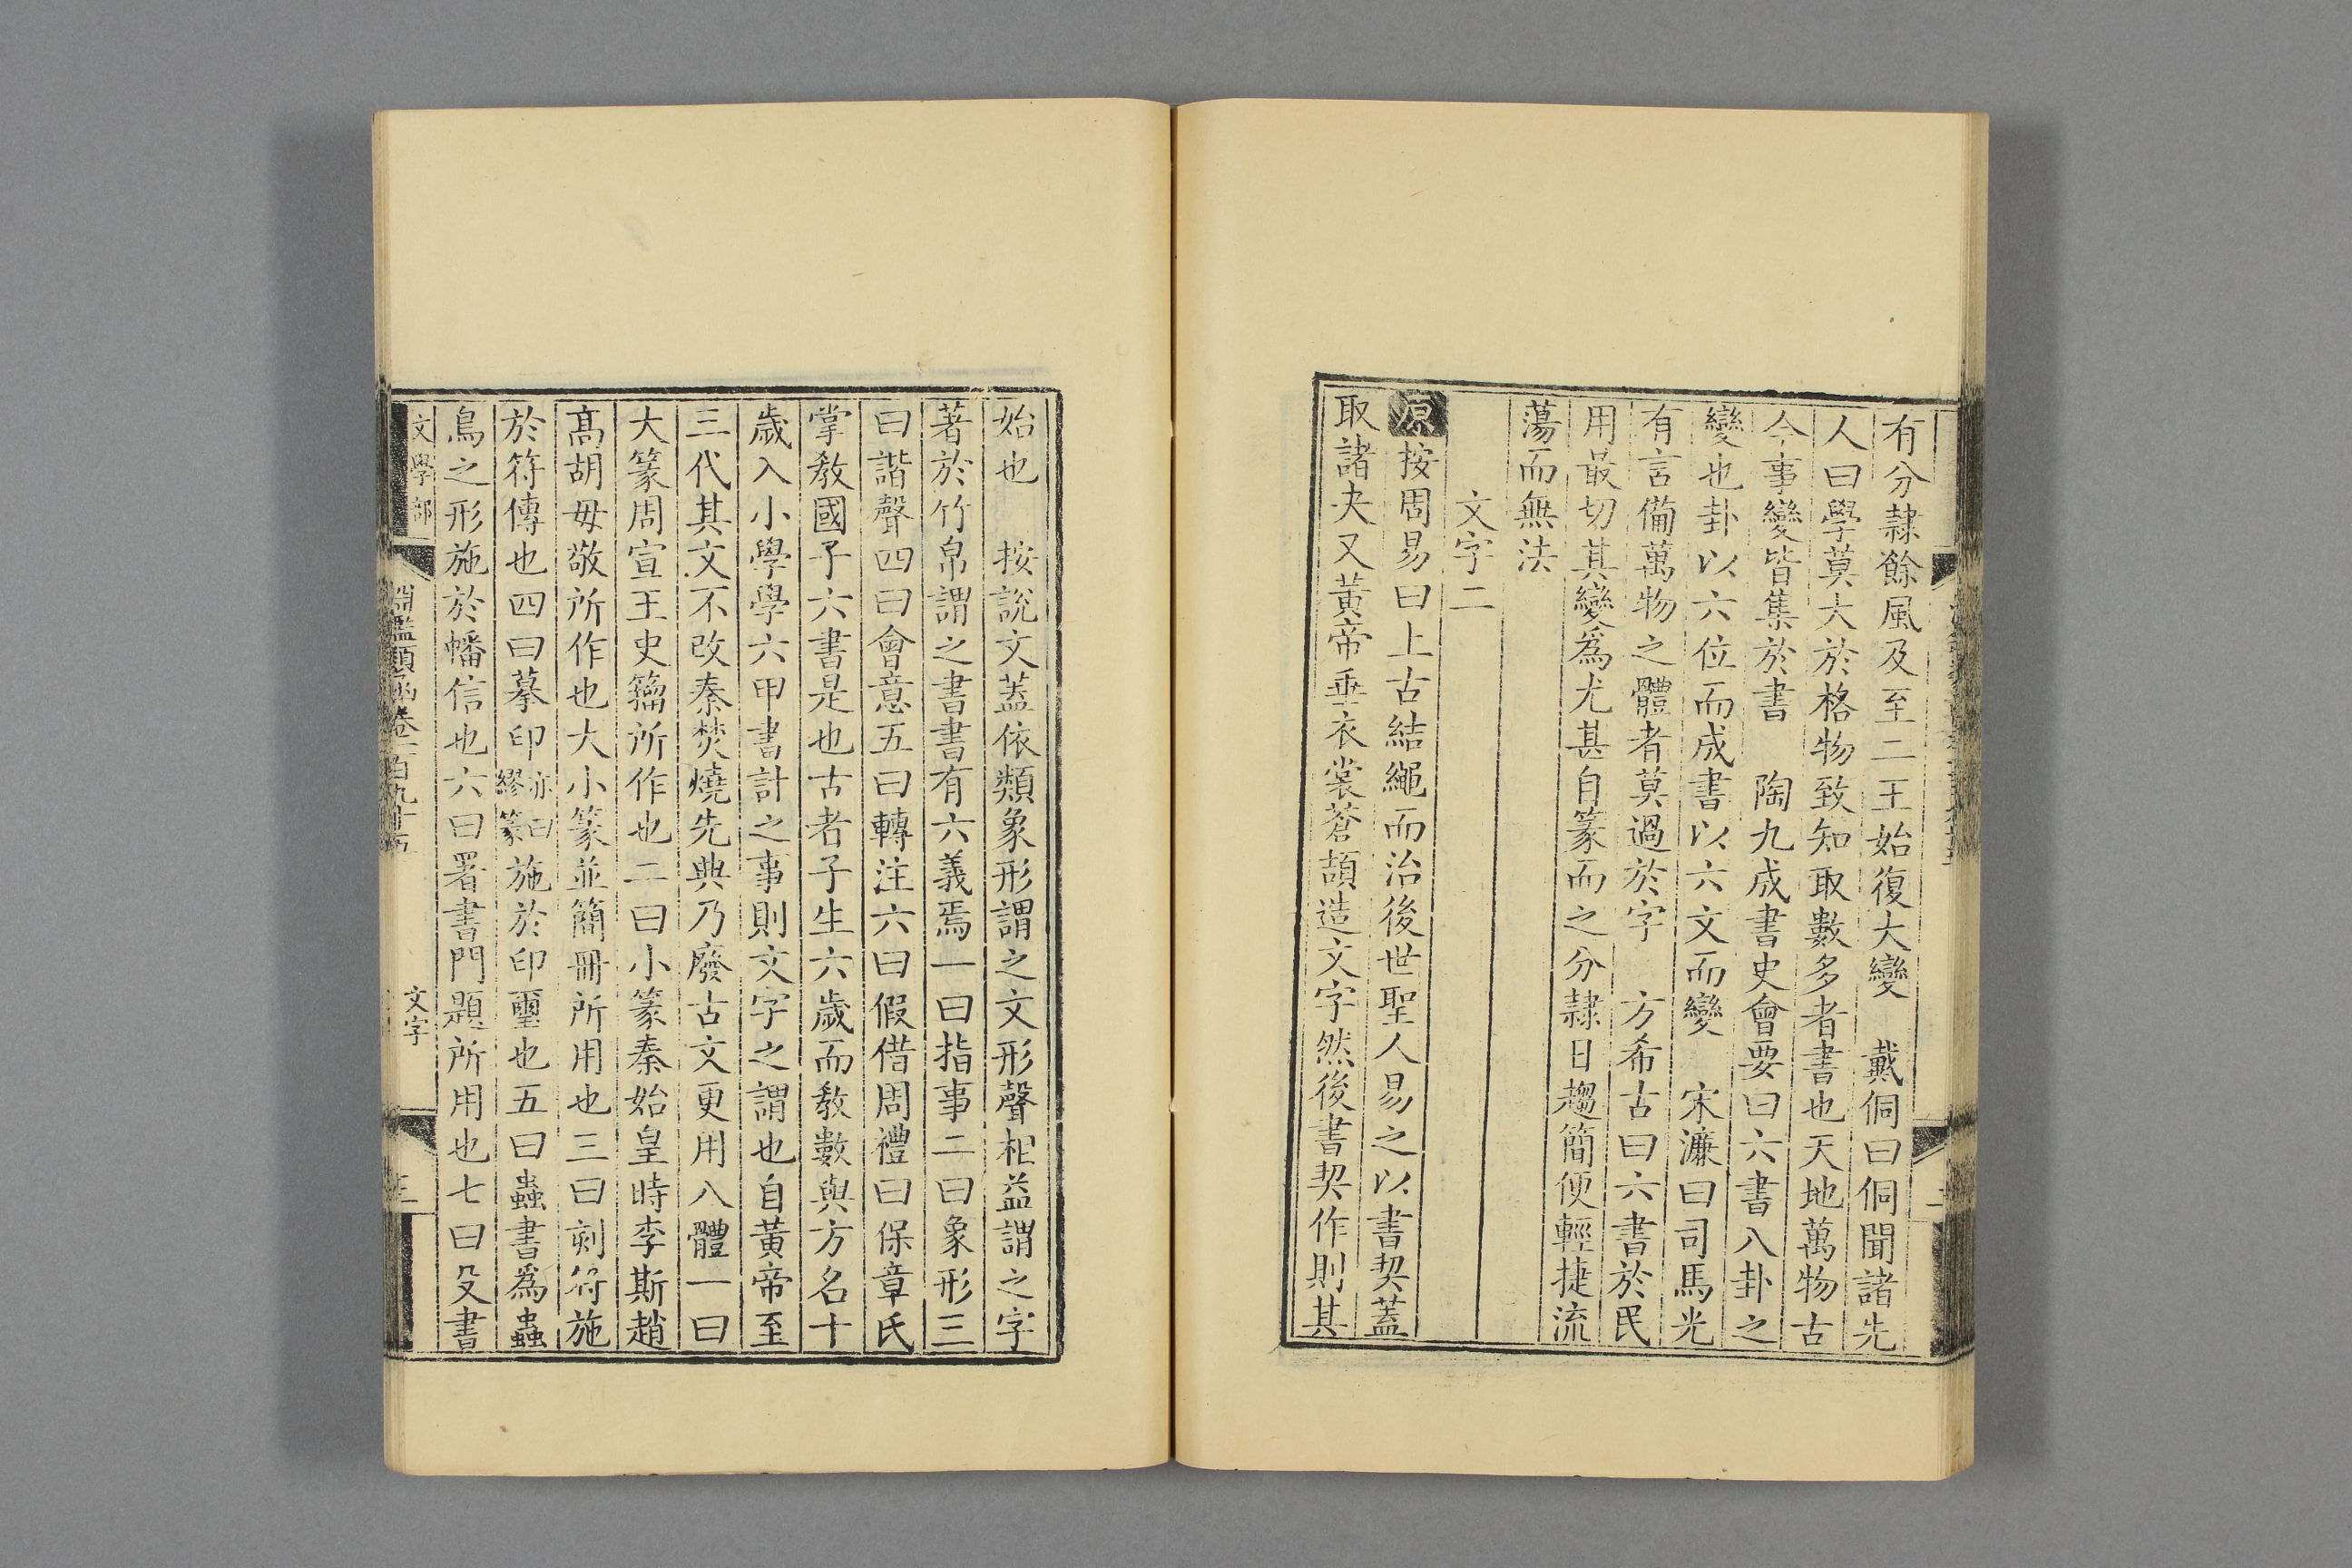 有分隷餘風及至二王始復大變　戴侗曰侗聞諸先
人曰學莫大於格物致知取數多者書也天地萬物古
今事變皆集於書　陶九成書史會要曰六書八卦之
變也卦以六位而成書以六文而變　宋濂曰司馬光
有言備萬物之體者莫過於字　方希古曰六書於民
用最切其變爲尤甚自篆而之分隷日趨簡便輕捷流
蕩而無法
文字二
原按周易曰上古結繩而治後世聖人易之以書契蓋
取諸夬又黃帝垂衣裳蒼頡造文字然後書契作則其
始也　按説文蓋依類象形謂之文形聲相益謂之字
著於竹帛謂之書書有六義焉一曰指事二曰象形三
曰諧聲四曰會意五曰轉注六曰假借周禮曰保章氏
掌教國子六書是也古者子生六歲而教數與方名十
歲入小學學六甲書計之事則文字之謂也自黃帝至
三代其文不改秦焚燒先典乃廢古文更用八體一曰
大篆周宣王史籀所作也二曰小篆秦始皇時李斯趙
高胡毋敬所作也大小篆並簡冊所用也三曰刻符施
於符傳也四曰摹印亦曰繆篆施於印璽也五曰蟲書爲蟲
鳥之形施於幡信也六曰署書門題所用也七曰殳書
文學部
淵鑑類函卷一百九十五
文字
三